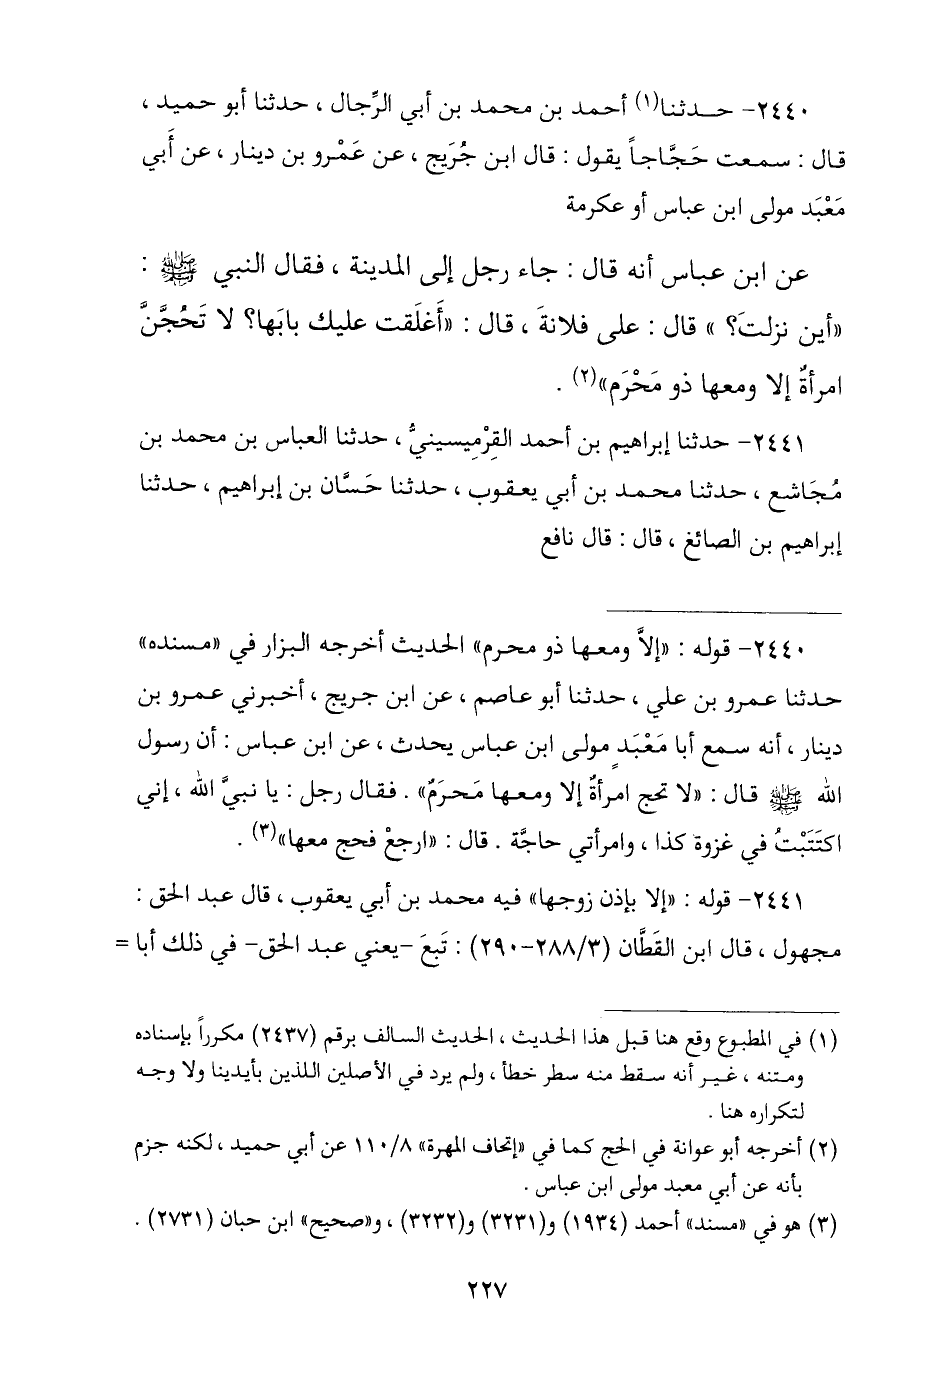 ٢٤٤٠- حـدثنا(١) أحمد بن محمد بن أبي الرِّجال ، حدثنا أبو حميد ،
قال : سمعت حَجَّاجاً يقول : قال ابن جُرَيج ، عن عَمْرو بن دينار ، عن أَبي
مَعْبَد مولى ابن عباس أو عكرمة
عن ابن عباس أنه قال : جاء رجل إلى المدينة ، فقال النبي ﷺ :
«أين نزلتَ؟ » قال : على فلانةَ ، قال : «أَغلَقت عليك بابَها؟ لا تَحُجَّنَّ
امرأةٌ إلا ومعها ذو مَحْرَم»(٢) .
٢٤٤١- حدثنا إبراهيم بن أحمد القِرْمِيسينيُّ ، حدثنا العباس بن محمد بن
مُجَاشع ، حدثنا محمد بن أبي يعقوب ، حدثنا حَسَّان بن إبراهيم ، حدثنا
إبراهيم بن الصائغ ، قال : قال نافع
٢٤٤٠- قوله : «إلاَّ ومعها ذو محرم» الحديث أخرجه البزار في «مسنده»
حدثنا عمرو بن علي ، حدثنا أبو عاصم ، عن ابن جريج ، أخبرني عمرو بن
دينار ، أنه سمع أبا مَعْبَدٍ مولى ابن عباس يحدث ، عن ابن عباس : أن رسول
الله ﷺ قال : «لا تحج امرأةٌ إلا ومعها مَحرَمٌ» . فقال رجل : يا نبيَّ الله ، إني
اكتَتَبْتُ في غزوة كذا ، وامرأتي حاجَّة . قال : «ارجعْ فحج معها»(٣) .
٢٤٤١- قوله : «إلا بإذن زوجها» فيه محمد بن أبي يعقوب ، قال عبد الحق :
مجهول ، قال ابن القَطَّان (٢٨٨/٣-٢٩٠) : تَبعَ -يعني عبد الحق- في ذلك أبا =
(١) في المطبوع وقع هنا قبل هذا الحديث ، الحديث السالف برقم (٢٤٣٧) مكرراً بإسناده
ومتنه ، غير أنه سقط منه سطر خطأ ، ولم يرد في الأصلين اللذين بأيدينا ولا وجه
لتكراره هنا .
(٢) أخرجه أبو عوانة في الحج كما في «إتحاف المهرة» ١١٠/٨ عن أبي حميد ، لكنه جزم
بأنه عن أبي معبد مولى ابن عباس .
(٣) هو في «مسند» أحمد (١٩٣٤) و(٣٢٣١) و(٣٢٣٢) ، و«صحيح» ابن حبان (٢٧٣١) .
٢٢٧